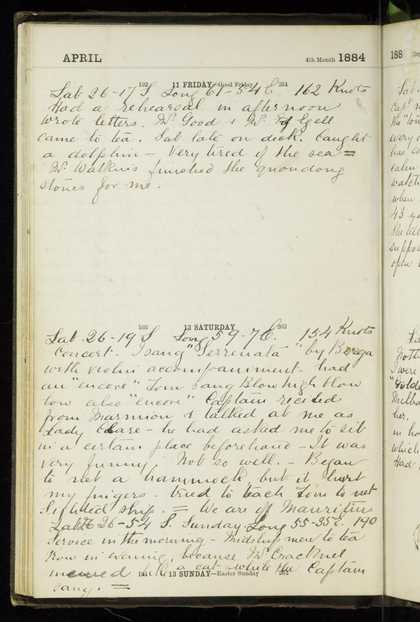 APRIL 4th Month 1884
102 11 FRIDAY—Good Friday 264
Lat 26-17 S Long 61-54 E. 162 Knots
Had a rehearsal in afternoon
wrote letters. Mr Good & Mr Egell
came to tea. Sat late on deck. Caught
a dolphin - Very tired of the sea =
Mr Watkins finished the quondong
stones for me.
103 12 SATURDAY 263
Lat. 26-19 S Long 59-7 E. 154 Knots
Concert. I sang "Serrenata" by Braga
with violin accompaniment had
an "encore" Tom sang Blow high blow
low also "encore" Captain recited
from Marmion & talked at me as
Lady Clare - he had asked me to sit
in a certain place beforehand - It was
very funny. Not so well. - Began
to net a hammock but it hurt
my fingers. tried to teach Tom to net
Sighted ship. = We are off Mauritius
Lat 26-54 S. Sunday Long 55-35 E. 190
Service in the morning - Midshipmen to tea
Row in evening, because Mr Cracknel
mewed like a cat while the Captain
104 13 SUNDAY—Easter Sunday 262
sang. =
188